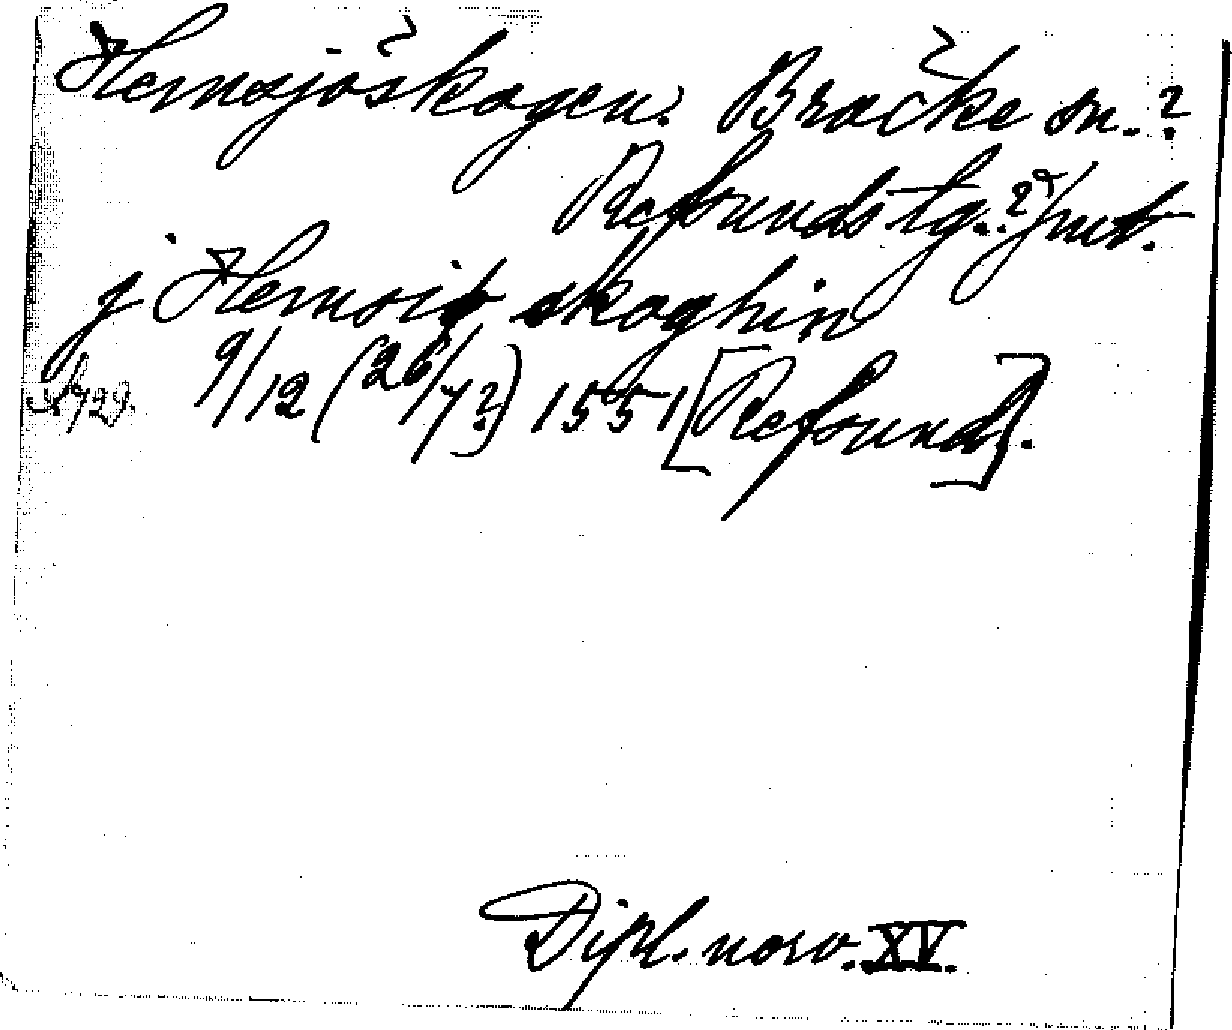 Hemsjöskogen? Bräcke sn.?
Refsunds tg.? Jmt.
j Hemsiø skoghin
9/12 (26/7?) 1551 [Refsund].
729.
Dipl. norv. XV.